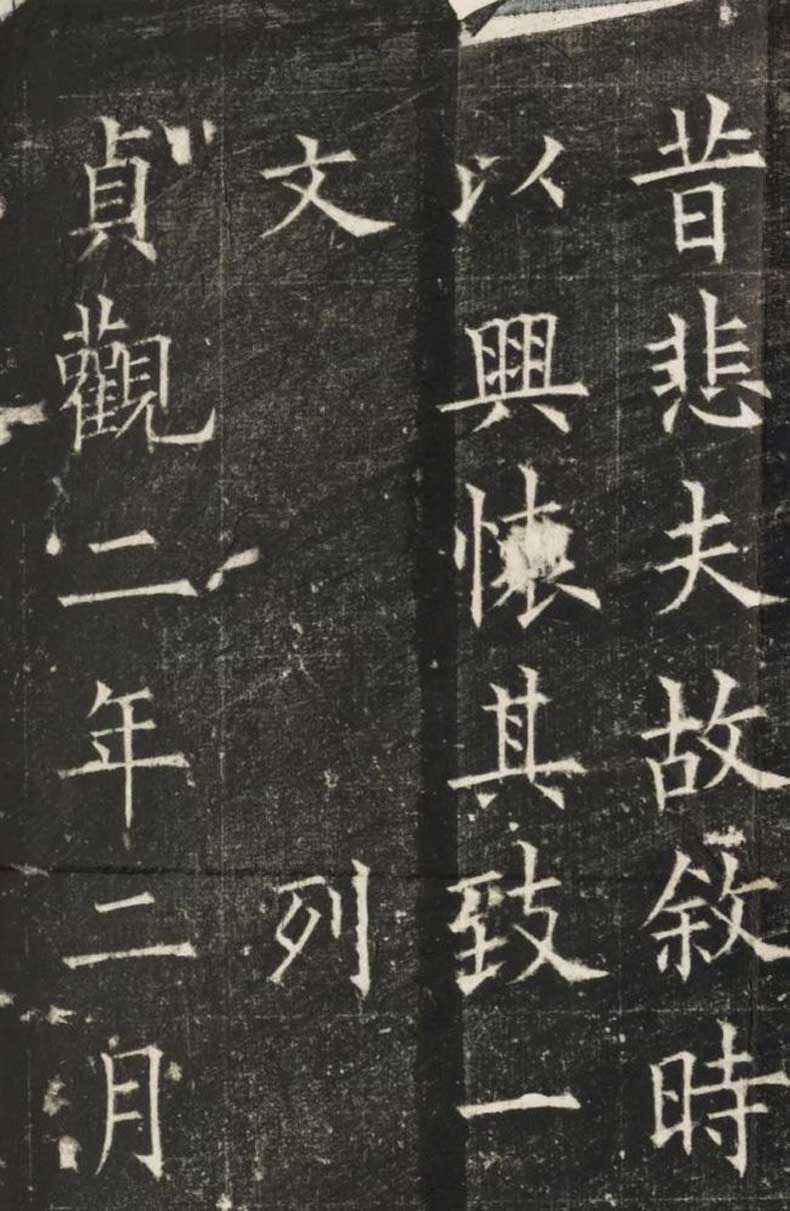 昔悲夫故敘時
以興懷其致一
文列
貞觀二年二月